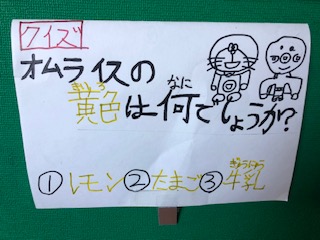 クイズ
オムライスの
きいろ なに
黄色は何でしょうか?
ぎゅうにゅう
①レモン②たまご③牛乳